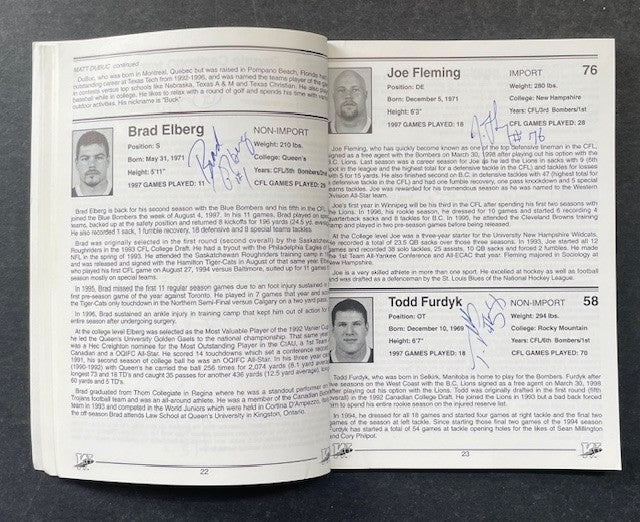 MATT DUBUC continued
DuBuc, who was born in Montreal, Quebec but was raised in Pompano Beach, Florida had
outstanding career at Texas Tech from 1992-1996, and was named the teams player of the
in contests versus top schools like Nebraska, Texas A & M and Texas Christian. He also pla
baseball while in college. He likes to relax with a round of golf and spends his time with
outdoor activities. His nickname is "Buck".
Brad Elberg NON-IMPORT
Position: S Weight: 210 lbs.
Born: May 31, 1971 College: Queen's
Height: 5'11" Years: CFL/5th Bombers/2nd
1997 GAMES PLAYED: 11 CFL GAMES PLAYED:
Brad Elberg is back for his second season with the Blue Bombers and his fifth in the CFL
joined the Blue Bombers the week of August 4, 1997. In his 11 games, Brad played on
teams, backed up at the safety position and returned 8 kickoffs for 196 yards (24.5 yd.
He also recorded 1 sack, 1 fumble recovery, 18 defensive and 8 special teams tackles.
Brad was originally selected in the first round (second overall) by the Saskatche
Roughriders in the 1993 CFL College Draft. He had a tryout with the Philadelphia Eagles
NFL in the spring of 1993. He attended the Saskatchewan Roughriders training camp in
and was released and signed with the Hamilton Tiger-Cats in August of that same year.
who played his first CFL game on August 27, 1994 versus Baltimore, suited up for 11 games
season mostly on special teams.
In 1995, Brad missed the first 11 regular season games due to an foot injury sustained in
first pre-season game of the year against Toronto. He played in 7 games that year and
the Tiger-Cats only touchdown in the Northern Semi-Final versus Calgary on a two yard pass.
In 1996, Brad sustained an ankle injury in training camp that kept him out of action
entire season after undergoing surgery.
At the college level Elberg was selected as the Most Valuable Player of the 1992 Vanier Cup
he led the Queen's University Golden Gaels to the national championship. That same year
was a Hec Creighton nominee for the Most Outstanding Player in the CIAU, a 1st Team
Canadian and a OQIFC All-Star. He scored 14 touchdowns which set a conference
1991, his second season of college ball he was an OQIFC All-Star. In his three year
(1990-1992) with Queen's he carried the ball 256 times for 2,074 yards (8.1 yard average
longest 73 and 18 TD's) and caught 35 passes for another 436 yards (12.5 yard average,
60 yards and 5 TD's.
Brad graduated from Thom Collegiate in Regina where he was a standout performer on
Trojans football team and was an all-around athlete. He was a member of the Canadian
team in 1993 and competed in the World Juniors which were held in Cortina D'Ampezzo, Italy
the off-season Brad attends Law School at Queen's University in Kingston, Ontario.
22
Joe Fleming IMPORT 76
Position: DE Weight: 280 lbs.
Born: December 5, 1971 College: New Hampshire
Height: 6'3" Years: CFL/3rd Bombers/1st
1997 GAMES PLAYED: 18 CFL GAMES PLAYED: 28
#76
Joe Fleming, who has quickly become known as one of the top defensive lineman in the CFL,
signed as a free agent with the Bombers on March 30, 1998 after playing out his option with the
B.C. Lions. Last season was a career season for Joe as he led the Lions in sacks with 9 (6th
spot in the league and the highest total for a defensive tackle in the CFL) and tackles for losses
with 5 for 15 yards. He also finished second on B.C. in defensive tackles with 47 (highest total for
a defensive tackle in the CFL) and had one fumble recovery, one pass knockdown and 5 special
teams tackles. Joe was rewarded for his tremendous season as he was named to the Western
Division All-Star team.
Joe's first year in Winnipeg will be his third in the CFL after spending his first two seasons with
the Lions. In 1996, his rookie season, he dressed for 10 games and started 6 recording 4
quarterback sacks and 8 tackles for B.C. In 1995, he attended the Cleveland Browns training
camp and played in two pre-season games before being released.
At the College level Joe was a three-year starter for the University New Hampshire Wildcats.
He recorded a total of 23.5 QB sacks over those three seasons. In 1993, Joe started all 12
games and recorded 38 solo tackles, 25 assists, 10 QB sacks and forced 2 fumbles. He made
the 1st Team All-Yankee Conference and All-ECAC that year. Fleming majored in Sociology at
New Hampshire.
Joe is a very skilled athlete in more than one sport. He excelled at hockey as well as football
and was drafted as a defenceman by the St. Louis Blues of the National Hockey League.
Todd Furdyk NON-IMPORT 58
Position: OT Weight: 294 lbs.
Born: December 10, 1969 College: Rocky Mountain
Height: 6'7" Years: CFL/6th Bombers/1st
1997 GAMES PLAYED: 18 CFL GAMES PLAYED: 70
Todd Furdyk, who was born in Selkirk, Manitoba is home to play for the Bombers. Furdyk after
five seasons on the West Coast with the B.C. Lions signed as a free agent on March 30, 1998
after playing out his option with the Lions. Todd was originally drafted in the first round (fifth
overall) in the 1992 Canadian College Draft. He joined the Lions in 1993 but a bad back forced
him to spend his entire rookie season on the injured reserve list.
In 1994, he dressed for all 18 games and started four games at right tackle and the final two
games of the season at left tackle. Since starting those final two games of the 1994 season
Furdyk has started a total of 54 games at tackle opening holes for the likes of Sean Millington
and Cory Philpot.
23